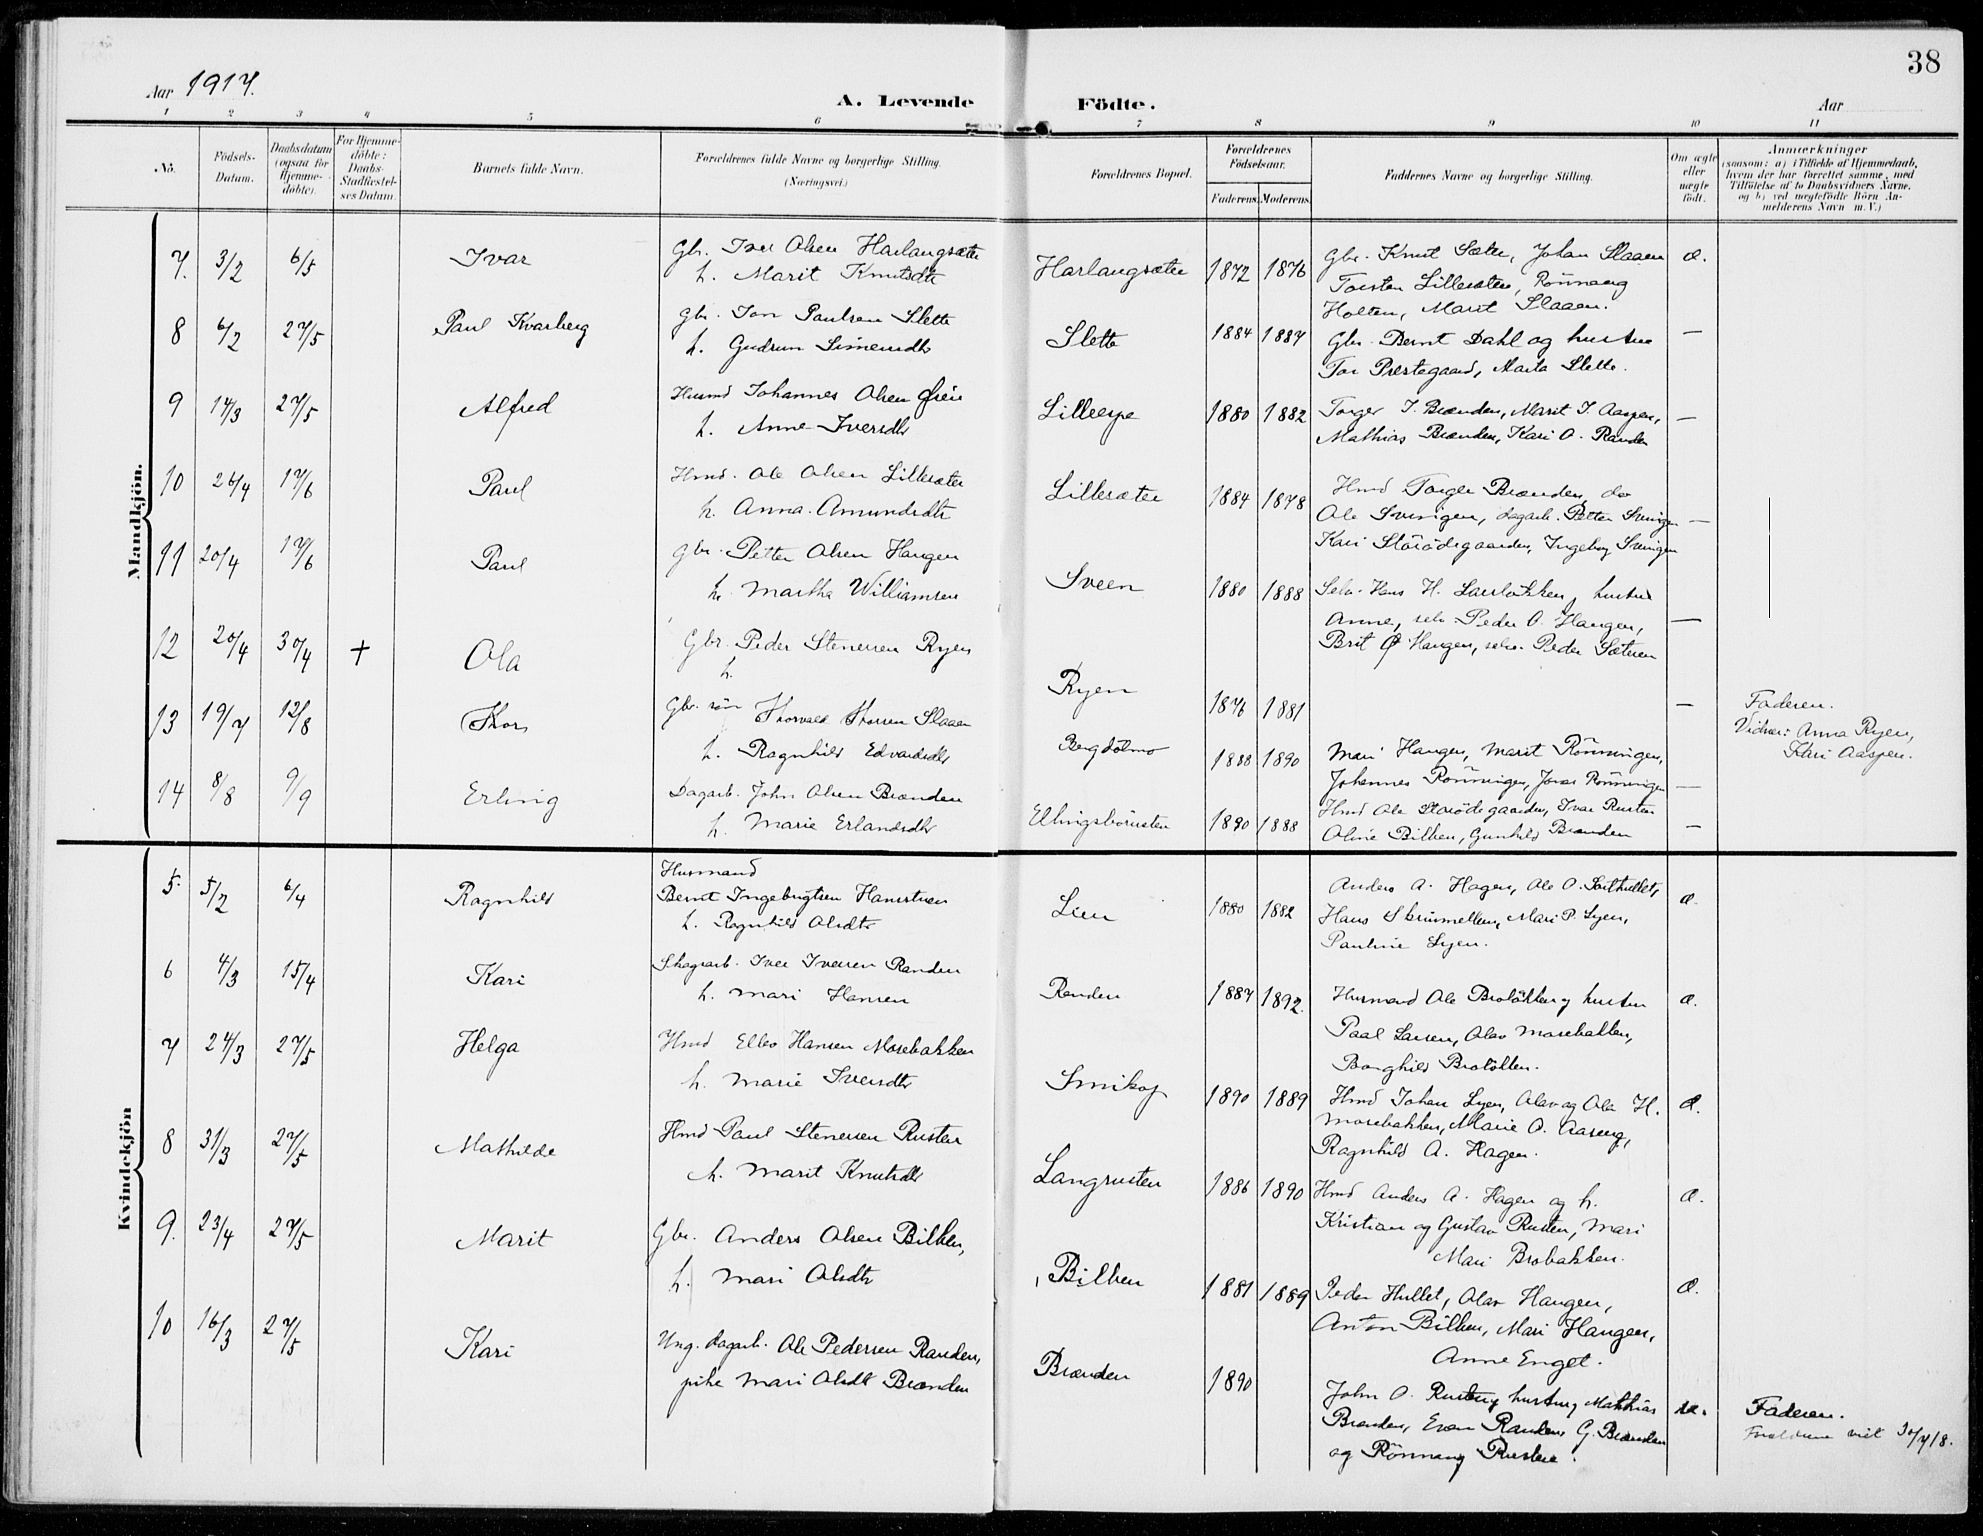 38
Aar 1917.
A. Levende Födte.
Aar
1 2 3 4 5 6 7 8 9 10 11
No.
Födsels-Datum.
Daabsdatum (ogsaa for Hjemmedöbte).
For Hjemmedöbte: Daabs-Stadfæstelses Datum.
Barnets fulde Navn.
Forældrenes fulde Navne og borgerlige Stilling. (Næringsvei.)
Forældrenes Bopæl.
Forældrenes Födselsaar.
Faderens. Moderens.
Faddernes Navne og borgerlige Stilling.
Om ægte eller uægte födt.
Anmærkninger
(saasom: a) i Tilfælde af Hjemmedaab,
hvem der har forrettet samme, med
Tilföielse af to Daabsvidners Navne,
og b) ved uægtefödte Börn An-
melderens Navn m. V.)
Mandkjön.
7. 3/2 6/5 Ivar
Gbr. Iver Olsen Harlangsæter
h. Marit Knutsdtr
Harlangsæter 1872 1876
Gbr. Knut Sæter, Johan Slaaen
Torsten Lillesæter, Rönnaug
Holten, Marit Slaaen.
æ.
8 6/2 27/5 Paul Kvarberg
Gbr. Jon Paulsen Slette
h. Gudrun Simensdtr
Slette 1884 1887
Gbr. Bernt Dahl og hustru
Tor Prestegaard, Marta Slette.
—
9 14/3 27/5 Alfred
Husmd Johannes Olsen Öien
h. Anne Iversdtr
Lilleespe 1880 1882
Torger J. Brænden, Marit J. Aaspen,
Mathias Brænden, Kari O. Randen
—
10 26/4 17/6 Paul
Hmd. Ole Olsen Lillesæter
h. Anna Amundsdtr
Lillesæter 1884 1878
Hmd Torger Brænden, do
Ole Sveingen, dagarb. Petter Sveingen
Kari Störödegaarden, Ingeborg Sveingen
—
11 20/4 17/6 Paul
Gbr. Petter Olsen Haugen
h. Martha Williamsen
Sveen 1880 1888
Selv. Hans H. Larslökken, hustru
Anne, selv. Peder O. Haugen,
Brit Haugen, selv. Peder Sætren
—
12 20/4 30/4 + Ola
Gbr. Peder Stenersen Ryen
h.
Ryen 1876 1881
—
Faderen.
Vidner: Anna Ryen,
Kari Aaspen.
13 19/7 12/8 Thor
Gbr. sön Thorvald Thorsen Slaaen
h. Ragnhild Edvardsdtr
Bergdölmo 1888 1890
Mari Haugen, Marit Rönningen,
Johannes Rönningen, Jonas Rönningen
—
14 8/8 9/9 Erling
Dagarb. John Olsen Brænden
h. Marie Erlandsdtr
Ellingsbörusten 1890 1888
Hmd Ole Störödegaarden, Ivar Rusten
Oline Bilben, Gunhild Brænden
—
Kvindekjön
5. 5/2 6/4 Ragnhild
Husmand
Bernt Ingebrigtsen Hamstuen
h. Ragnhild Olsdtr
Lien 1880 1882
Anders A. Hagen, Ole O. Sorthullet,
Hans Skrimellen, Mari P. Lyen,
Pauline Lyen.
æ.
6 4/3 15/4 Kari
Skogarb. Iver Iversen Randen
h. Mari Hansen
Randen 1887 1892.
Husmand Ole Brolökken og hustru
Paal Larsen, Olav Mosebakken,
Borghild Brolökken.
æ.
7 24/3 27/5 Helga
Hmd Ellev Hansen Mosebakken
h. Marie Iversdtr
Smikop 1890 1889
Hmd Johan Lyen, Olav og Ole H.
Mosebakken, Marie O. Aaseng,
Ragnhild A. Hagen.
æ.
8 31/3 27/5 Mathilde
Hmd Paul Stenersen Rusten
h. Marit Knutsdtr
Langrusten 1886 1890
Hmd Anders A. Hagen og h.
Kristian og Gustav Rusten, Mari
Mari Brobakken.
æ.
9. 23/4 27/5 Marit
Gbr. Anders Olsen Bilben,
h. Mari Olsdtr
Bilben 1881 1889
Peder Hullet, Olav Haugen,
Anton Bilben, Mari Haugen,
Anne Enget.
æ.
10 16/3 27/5 Kari
Ung. dagarb. Ole Pedersen Randen,
pike Mari Olsdtr Brænden
Brænden 1890
John O. Rusten og hustru, Mathias
Brænden, Even Randen, G. Brænden
og Rönnaug Rusten.
uæ.
Faderen.
Forældrene viet 30/7 18.